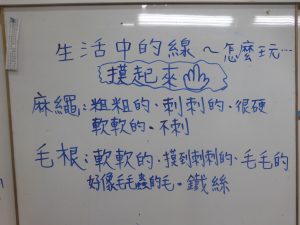 生活中的線～怎麼玩…
摸起來
麻繩：粗粗的、刺刺的、很硬
軟軟的、不刺
毛根：軟軟的、摸到刺刺的、毛毛的
好像毛毛蟲的毛、鐵絲